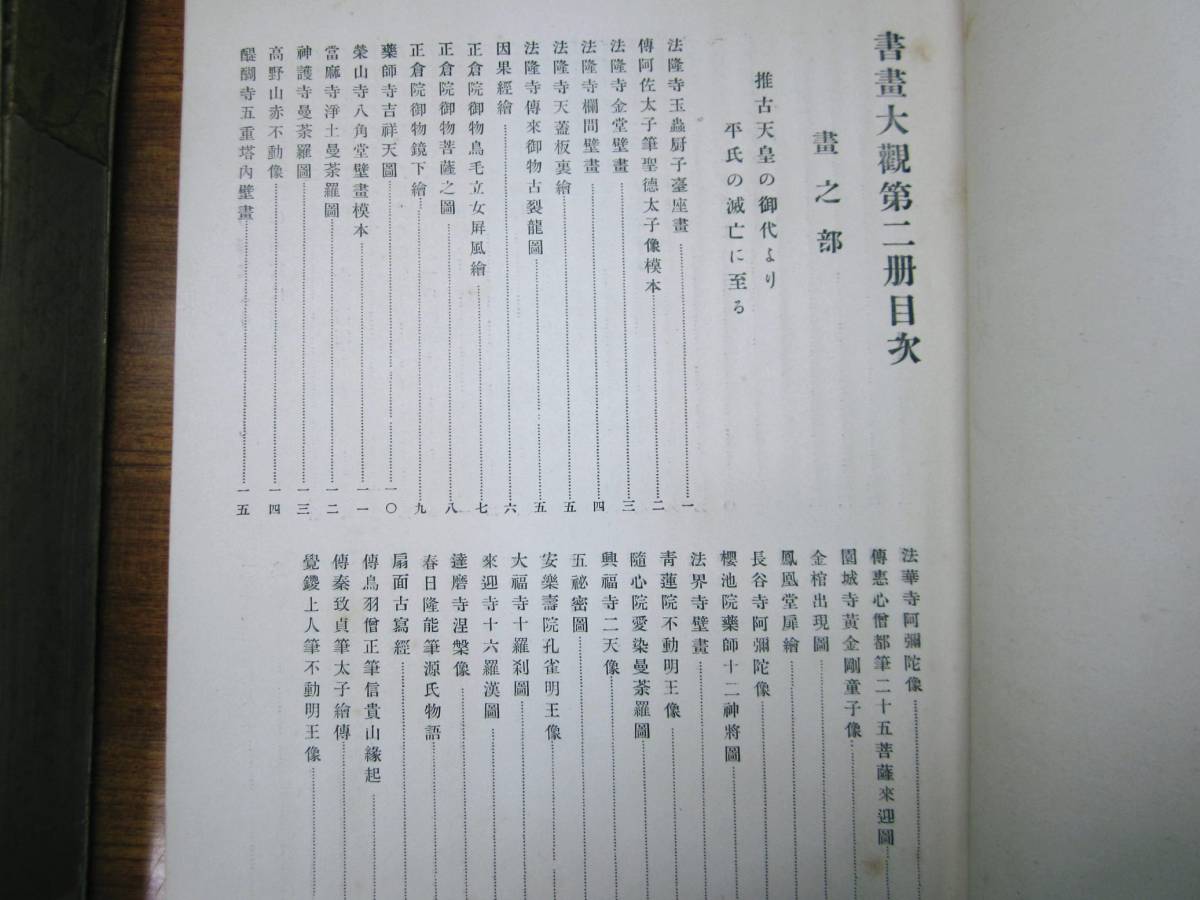 書畫大觀第二册目次
畫之部
推古天皇の御代より
平氏の滅亡に至る
法隆寺玉蟲厨子臺座畫 一
傳阿佐太子筆聖德太子像模本 二
法隆寺金堂壁畫 三
法隆寺欄間壁畫 四
法隆寺天蓋板裏繪 五
法隆寺傳來御物古裂龍圖 五
因果經繪 六
正倉院御物鳥毛立女屛風繪 七
正倉院御物菩薩之圖 八
正倉院御物鏡下繪 九
藥師寺吉祥天圖 一〇
榮山寺八角堂壁畫模本 一一
當麻寺淨土曼荼羅圖 一二
神護寺曼荼羅圖 一三
高野山赤不動像 一四
醍醐寺五重塔內壁畫 一五
法華寺阿彌陀像
傳惠心僧都筆二十五菩薩來迎圖
園城寺黃金剛童子像
金棺出現圖
鳳凰堂扉繪
長谷寺阿彌陀像
櫻池院藥師十二神將圖
法界寺壁畫
靑蓮院不動明王像
隨心院愛染曼荼羅圖
興福寺二天像
五祕密圖
安樂壽院孔雀明王像
大福寺十羅刹圖
來迎寺十六羅漢圖
達磨寺涅槃像
春日隆能筆源氏物語
扇面古寫經
傳鳥羽僧正筆信貴山緣起
傳秦致貞筆太子繪傳
覺鑁上人筆不動明王像